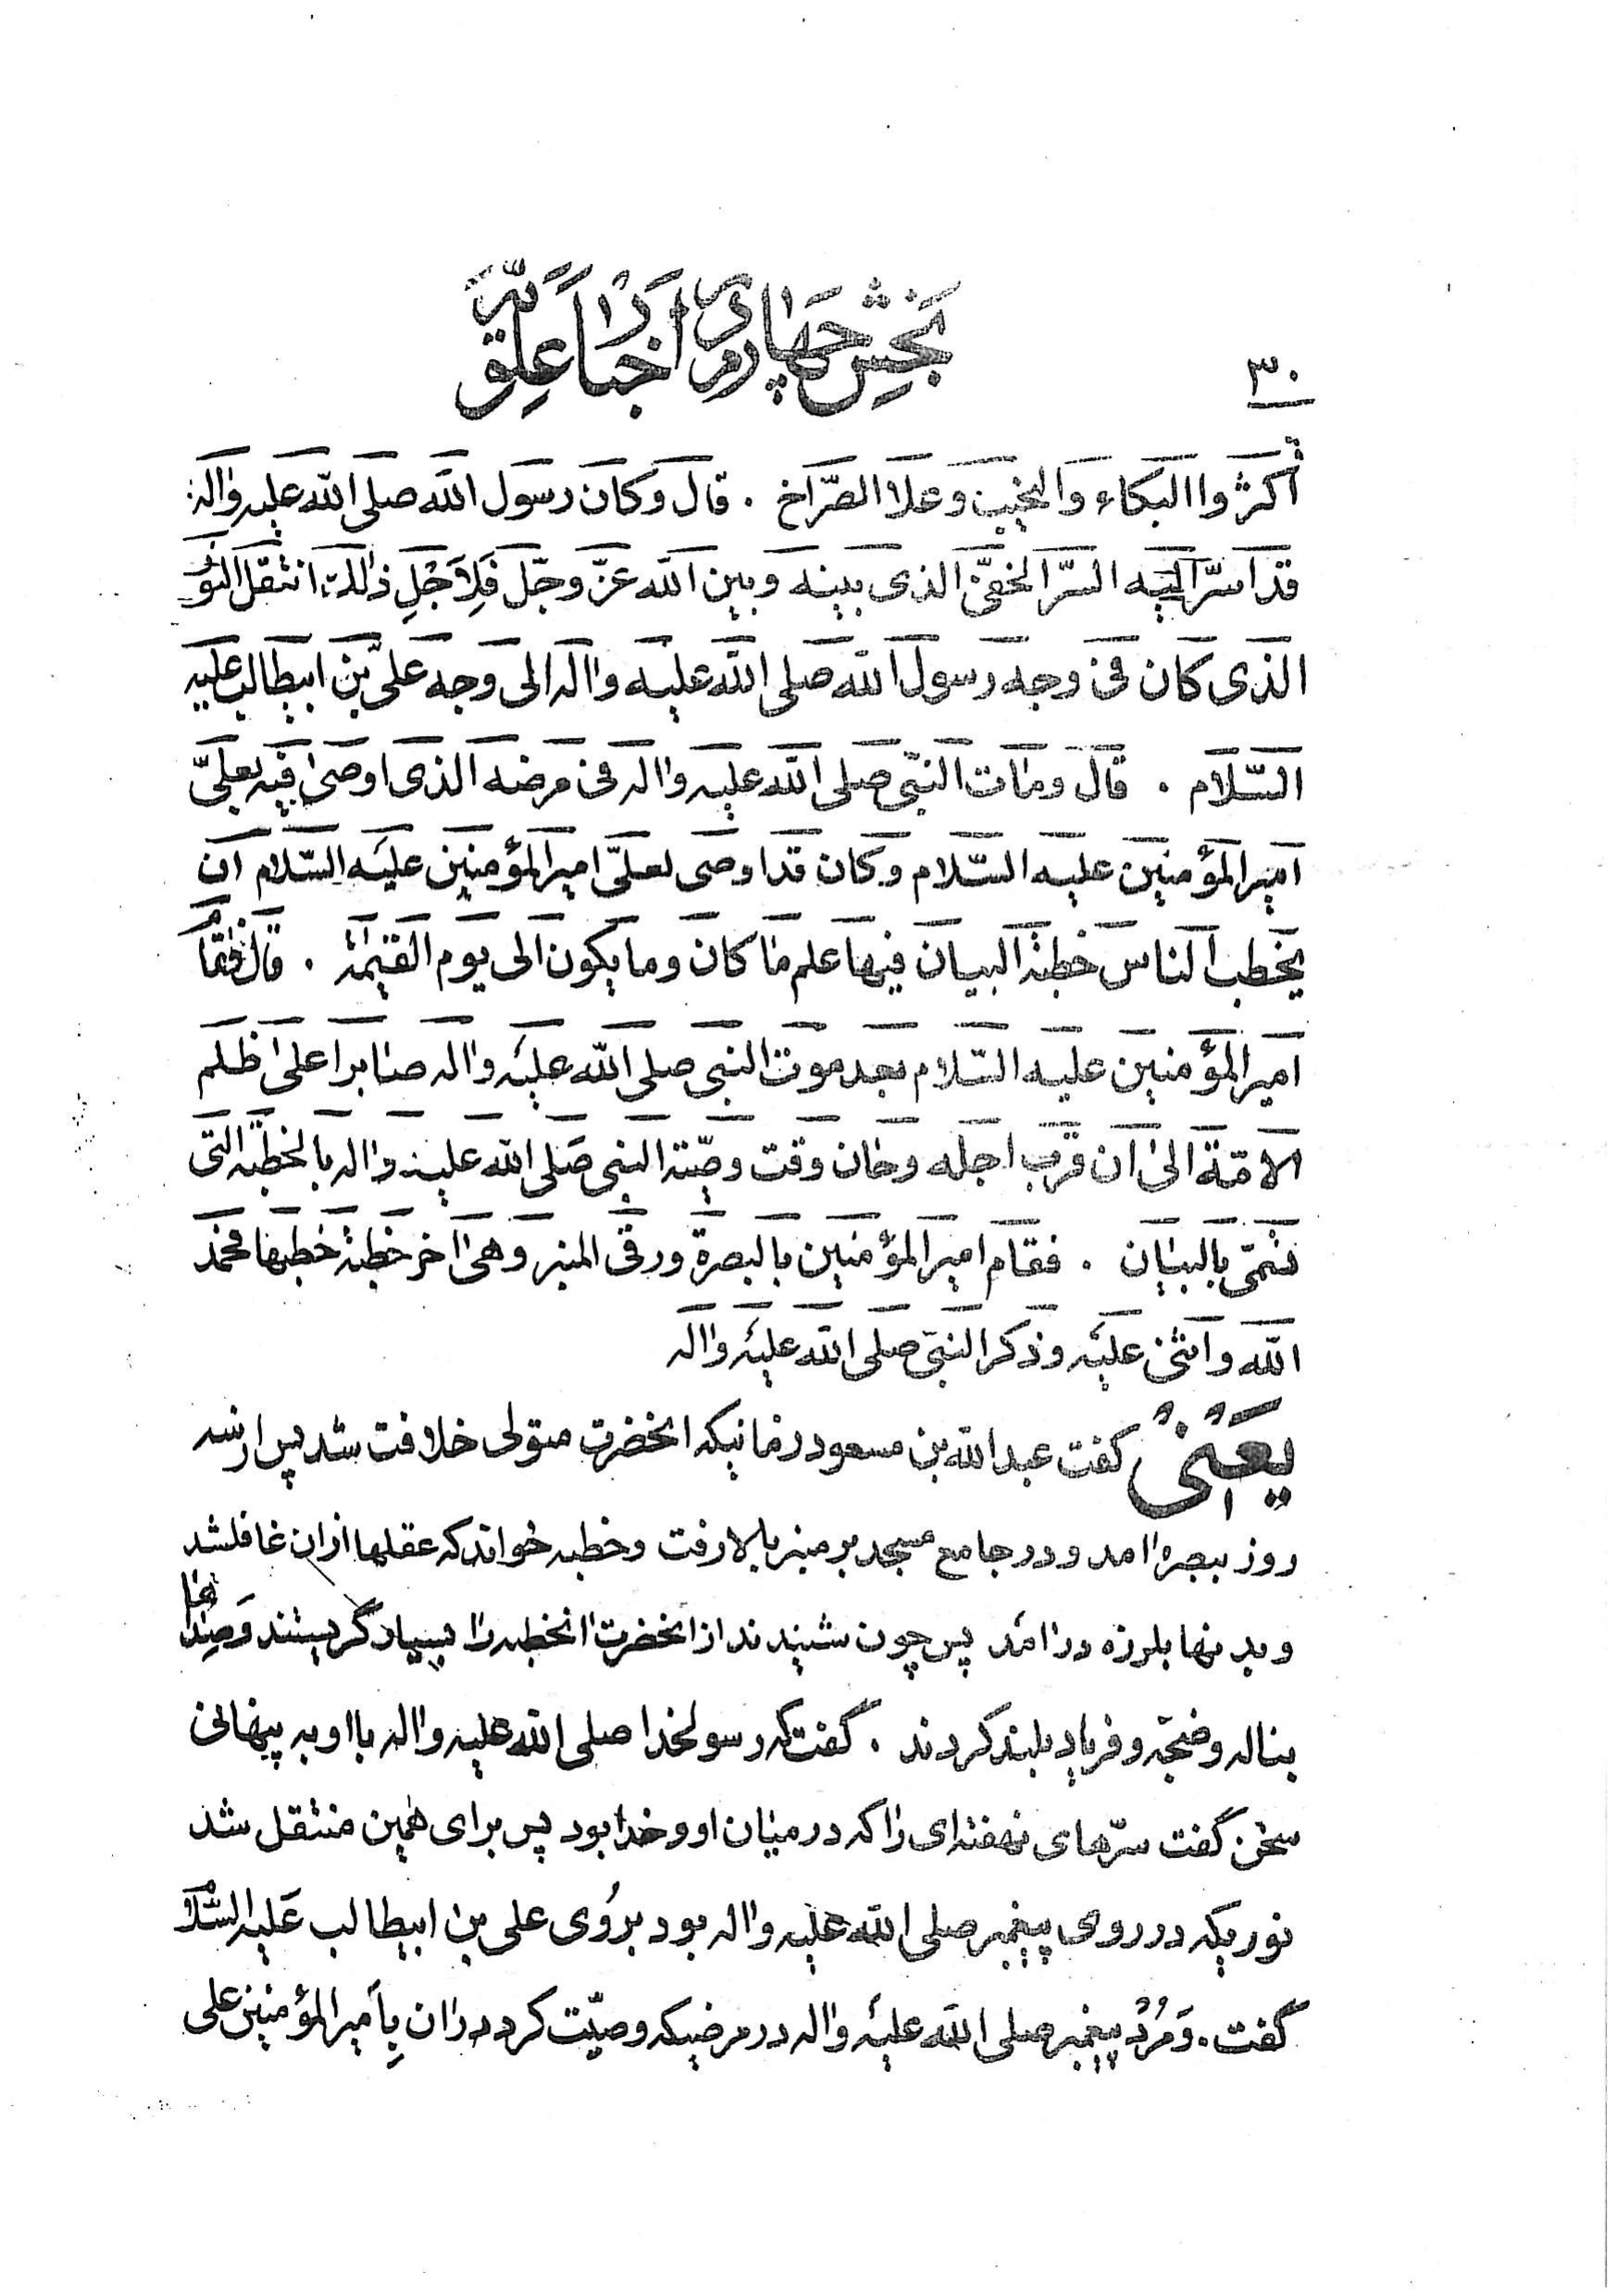 بخش چهارم در اخبار علویه
۳۰
اکثروا البکاء والنحیب وعلا الصّراخ . قال وکان رسول الله صلی الله علیه واله
قد اسرّ الیه السرّ الخفیّ الذی بینه وبین الله عزّ وجّل فَلِاَجْلِ ذالك انتقل النّور
الذی کان فی وجه رسول الله صلی الله علیه واله الی وجه علیّ بن ابیطالب علیه
السّلام . قال ومات النبّی صلی الله علیه واله فی مرضه الذی اوصی فیه بعلیّ
امیرالمؤمنین علیه السّلام وکان قد اوصی لعلیّ امیرالمؤمنین علیه السّلام ان
یخطب الناس خطبة البیان فیها علم ما کان وما یکون الی یوم القیٰمة . قال فقام
امیرالمؤمنین علیه السّلام بعد موت النبی صلی الله علیه واله صابرا علی ظلم
الامّة الی ان قرب اجله وحان وقت وصیّة النبی صلی الله علیه واله بالخطبه التی
تسمّی بالبیان . فقام امیرالمؤمنین بالبصرة ورقی المنبر وهی اخر خطبة خطبها فحمد
الله واثنی علیه وذکر النبّی صلی الله علیه واله
یعنی گفت عبدالله بن مسعود زمانیکه انحضرت متولی خلافت شد پس از سه
روز ببصره امد و در جامع مسجد بر منبر بالا رفت وخطبه خواند که عقلها ازان غافلشد
و بدنها بلرزه درامد پس چون شنیدند از انحضرت انخطبه را بسیار گریستند وصِداها
بناله وضجّه وفریاد بلند کردند . گفت که رسولخدا صلی الله علیه واله با او به پنهانی
سخن گفت سرّهای نهفته‌ای را که در میان او وخدا بود پس برای همین منتقل شد
نوریکه در روی پیغمبر صلی الله علیه واله بود برُوی علی بن ابیطالب علیه السّلام
گفت . وَمُرد پیغمبر صلی الله علیه واله در مرضیکه وصیّت کرد دران بِامیرالمؤمنین علی